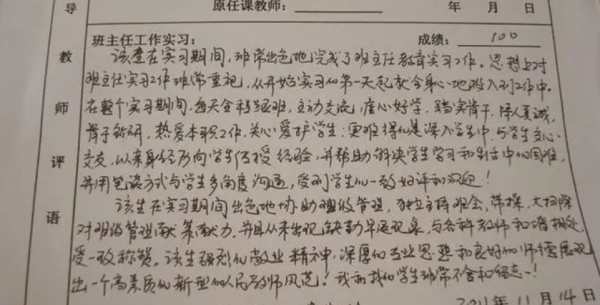 原任课教师：
年 月 日
导教师评语
班主任工作实习： 成绩：100
该生在实习期间，非常出色地完成了班主任教育实习工作。思想上对
班主任实习工作非常重视，从开始实习的第一天起就全身心地投入到工作中。
在整个实习期间，每天全程跟班，主动交流，虚心好学，踏实肯干，待人真诚，
肯于钻研，热爱本职工作，关心爱护学生；更难得的是深入学生中与学生交心
交友，以亲身经历向学生传授经验，并帮助解决学生学习和生活中的困难，
并用笔谈方式与学生多角度沟通，受到学生的一致好评和欢迎！
该生在实习期间出色地协助班级管理，独立主持班会，带操，大扫除
对班级管理献策献力，并且从未出现缺勤早退现象，与各科教师和谐相处，
受一致称赞。该生强烈的敬业精神，深厚的专业思想和良好的师德展现
出一个高素质的新型的人民教师风范！我和我的学生非常不舍和留恋！
2011年11月14日